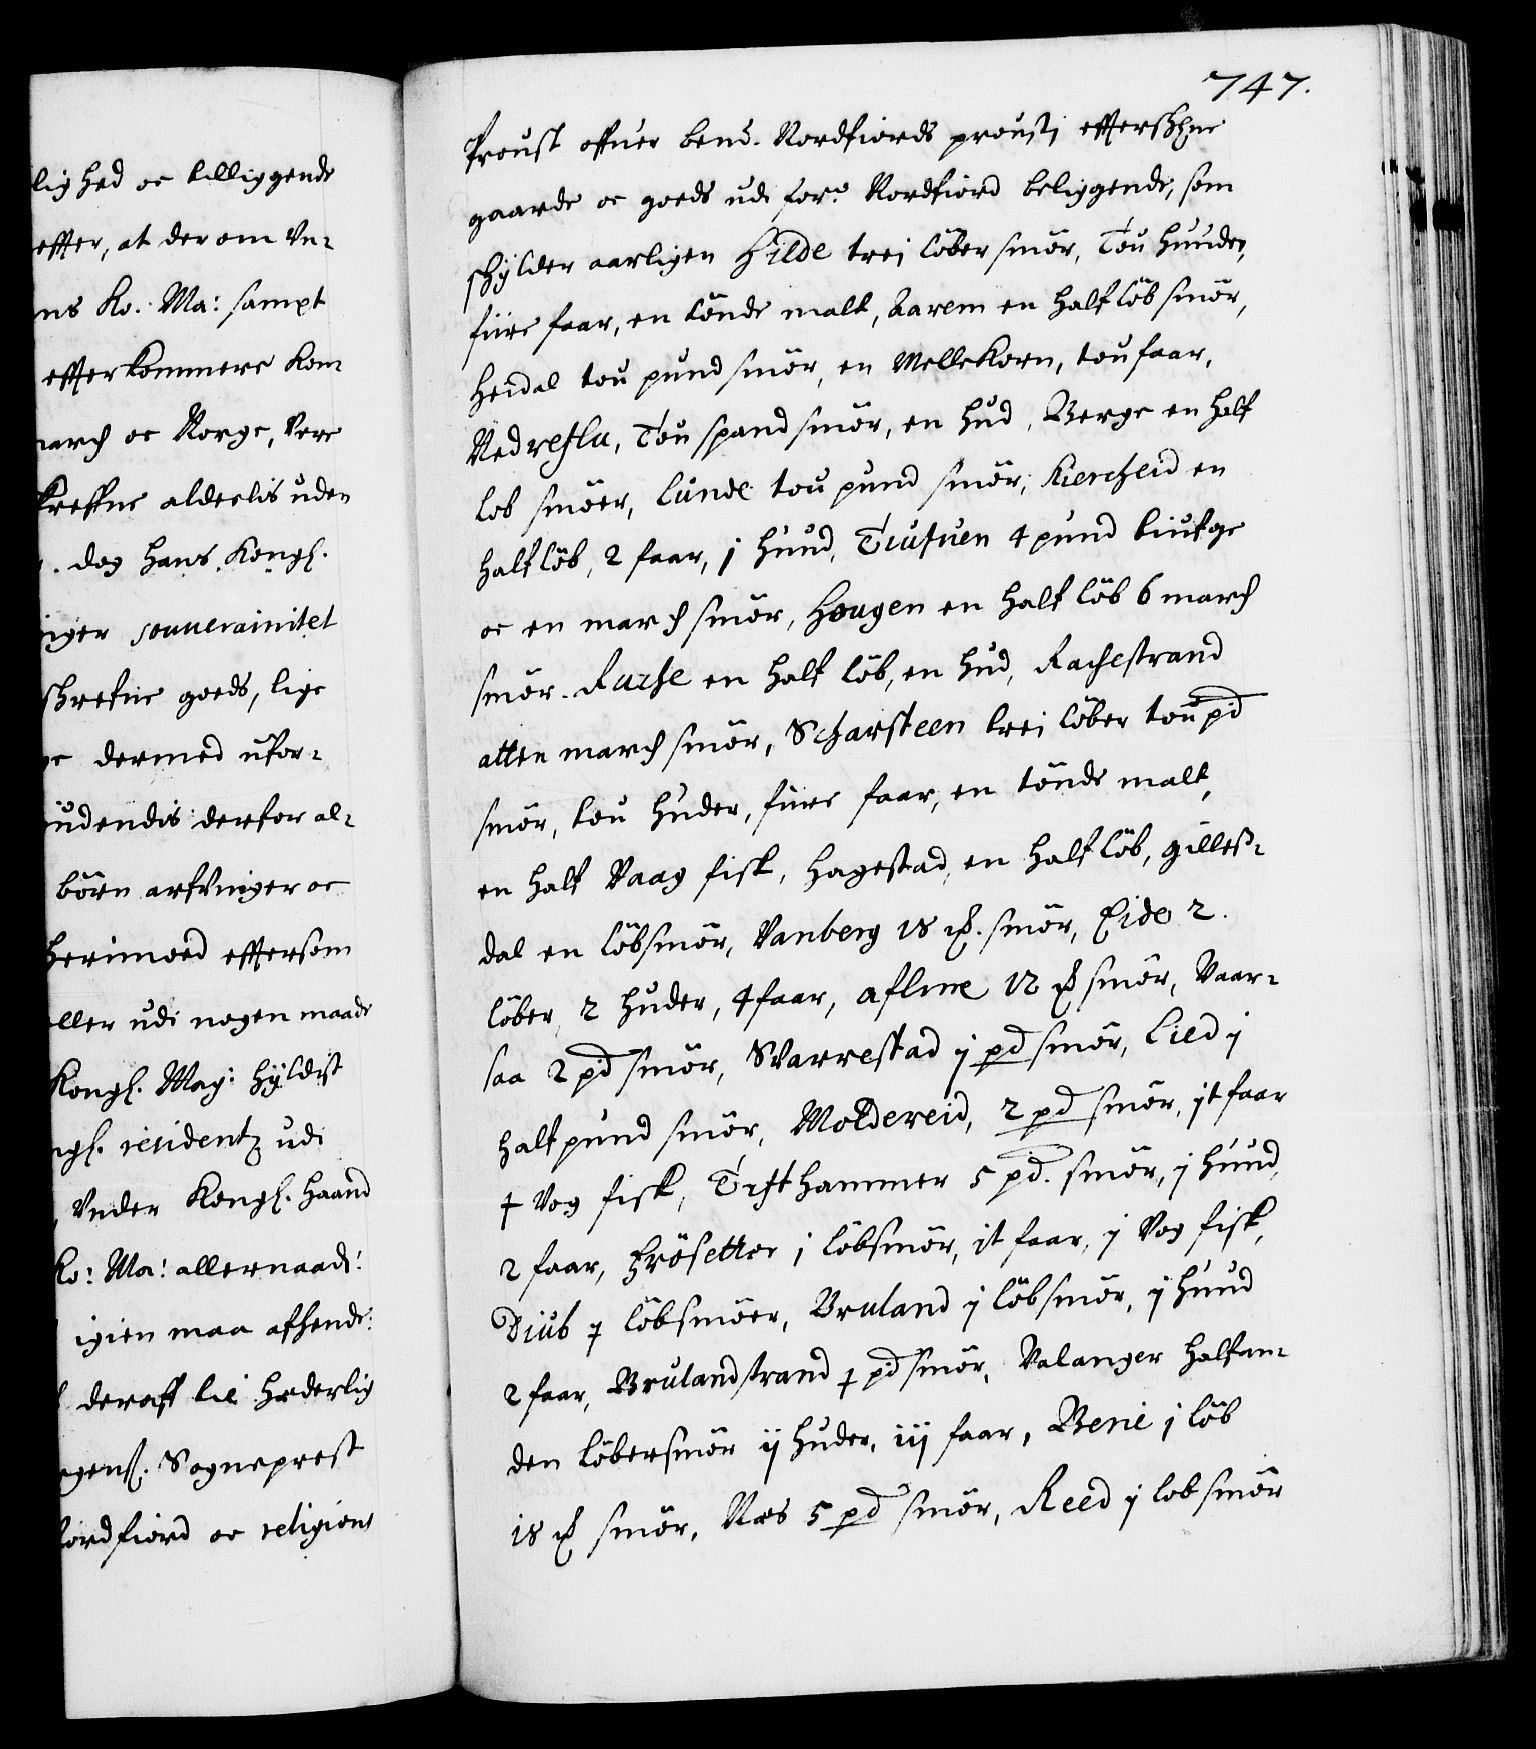 lighed oc tilliggende
effter, at derom Vn-
ns Ko: Ma: sampt
effterkommere Kon-
march oc Norge, Vere
kreffne alderlis uden
. dog hans Kongl.
inger souverainitet
schrefne goeds, lige
ge dermed ufor-
iudendis derfor al-
börn arfvinger oc
herimoed effersom
eller udi nogen maade
Kongl. May: hyldist
ngl. residentz udi
Vnder Kongl. Haand
Ko: Ma: allernaad:
igien maa afhende:
deraff til hæderlig
egensl. Sogneprest
Nordfiord oc religions
747.
Proust offuer bend. Nordfiords prousti effterschne
gaarde oc goeds udi for.e Nordfiord beliggende, som
schylder aarligen Hilde trei löber smör, Tou huuder,
fiire faar, en tönde malt, Aarem en half löb smör,
Heidal tou pund smör, en Mellekorn, tou faar,
Nedreflu, Tou spand smör, en hud, Berge en half
lob smöer, Lunde tou pund smör, Kiercheid en
half löb, 2 faar, j huud, Tiufuen 4 pund tiufge
oc en march smör, Hougen en half löb 6 march
smör. Rurse en half löb, en hud, Rachestrand
atten march smör, Scharsteen trei löber tou pd
smör, tou huder, fiire faar, en tönde malt,
en half Vaag fisk, Hagestad en half löb, gilles-
dal en löbsmör, Vanberg 18 ℔. smör, Eide 2.
löber, 2 huder, 4 faar, aflme 12 ℔ smör, Vaar-
saa 2 pd smör, Svarrestad j pd smör, Lied j
half pund smör, Moldereid, 2 pd smör, jt faar
⨍ Vog fisk, Tisthammer 5 pd. smör, j huud,
2 faar, Frösetter j löbsmör, it faar, j Vog fisk,
Diub ⨍ löbsmöer, Bruland j löbsmör, j huud
2 faar, Brulandstrand ⨍ pd smör, Valanger halfan-
den löbersmör ij huder, iij faar, Berie j löb
18 ℔ smör, Næs 5 pd smör, Reed j lob smör